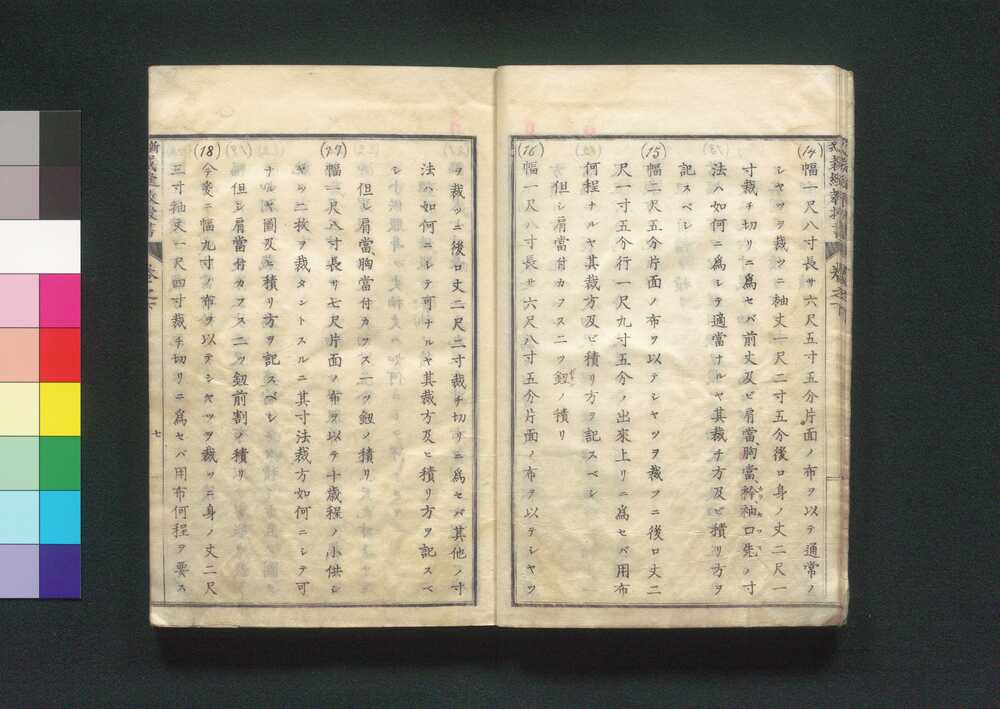 (14) 幅一尺八寸長サ六尺五寸五分片面ノ布ヲ以テ通常ノ
シヤツヲ裁ツニ袖丈一尺二寸五分後ロ身ノ丈二尺一
寸裁チ切リニ爲セバ前丈及ビ肩當、胸當、衿、袖口先ノ寸
法ハ如何ニ爲シテ適當ナルヤ其裁チ方及ビ積リ方ヲ
記スベシ
(15) 幅二尺五分片面ノ布ヲ以テシヤツヲ裁ツニ後ロ丈二
尺一寸五分行一尺九寸五分ノ出來上リニ爲セバ用布
何程ナルヤ其裁方及ビ積リ方ヲ記スベシ
但シ肩當付カフス二ツ釦ノ積リ
(16) 幅一尺八寸長サ六尺八寸五分片面ノ布ヲ以テシヤツ
ヲ裁ツニ後ロ丈二尺二寸裁チ切リニ爲セバ其他ノ寸
法ハ如何ニシテ可ナルヤ其裁方及ヒ積リ方ヲ記スベ
シ
但シ肩當、胸當付カフス一ツ釦ノ積リ
(17) 幅一尺八寸長サ七尺片面ノ布ヲ以テ十歳程ノ小供シ
ヤツ二枚ヲ裁タントスルニ其寸法裁方如何ニシテ可
ナルヤ圖及ニ積リ方ヲ記スベシ
但シ肩當付カフス二ツ釦前割ノ積リ
(18) 今爰ニ幅九寸ノ布ヲ以テシヤツヲ裁ツニ身ノ丈二尺
三寸袖丈一尺四寸裁チ切リニ爲セバ用布何程ヲ要ス
七